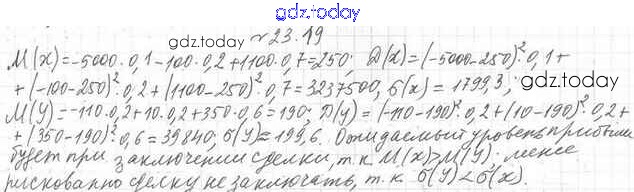 gdz.today
№23.19
gdz.today
M(x)=-5000·0,1-100·0,2+1100·0,7=250; D(x)=(-5000-250)²·0,1+
+(-100-250)²·0,2+(1100-250)²·0,7=3237500, б(x)=1799,3;
gdz.today
M(y)=-110·0,2+10·0,2+350·0,6=190; D(y)=(-110-190)²·0,2+(10-190)²·0,2+
+(350-190)²·0,6=39840; б(y)=199,6. Ожидаемый уровень прибыли
будет при заключении сделки, т.к M(x)>M(y), менее
рискованно сделку не заключать, т.к б(y)<б(x).